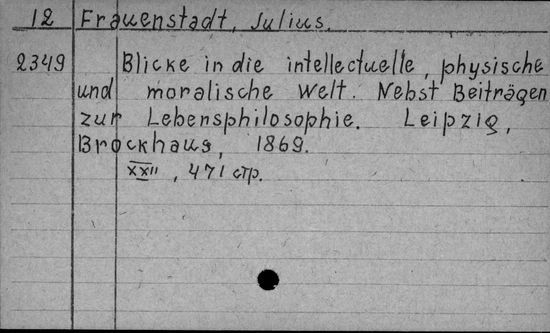 12 Frauenstadt, Julius.
2349 Blicke in die intellectuelle, physische
und moralische Welt. Nebst Beiträgen
zur Lebensphilosophie. Leipzig,
Brockhaus, 1869.
XXII, 471 стр.